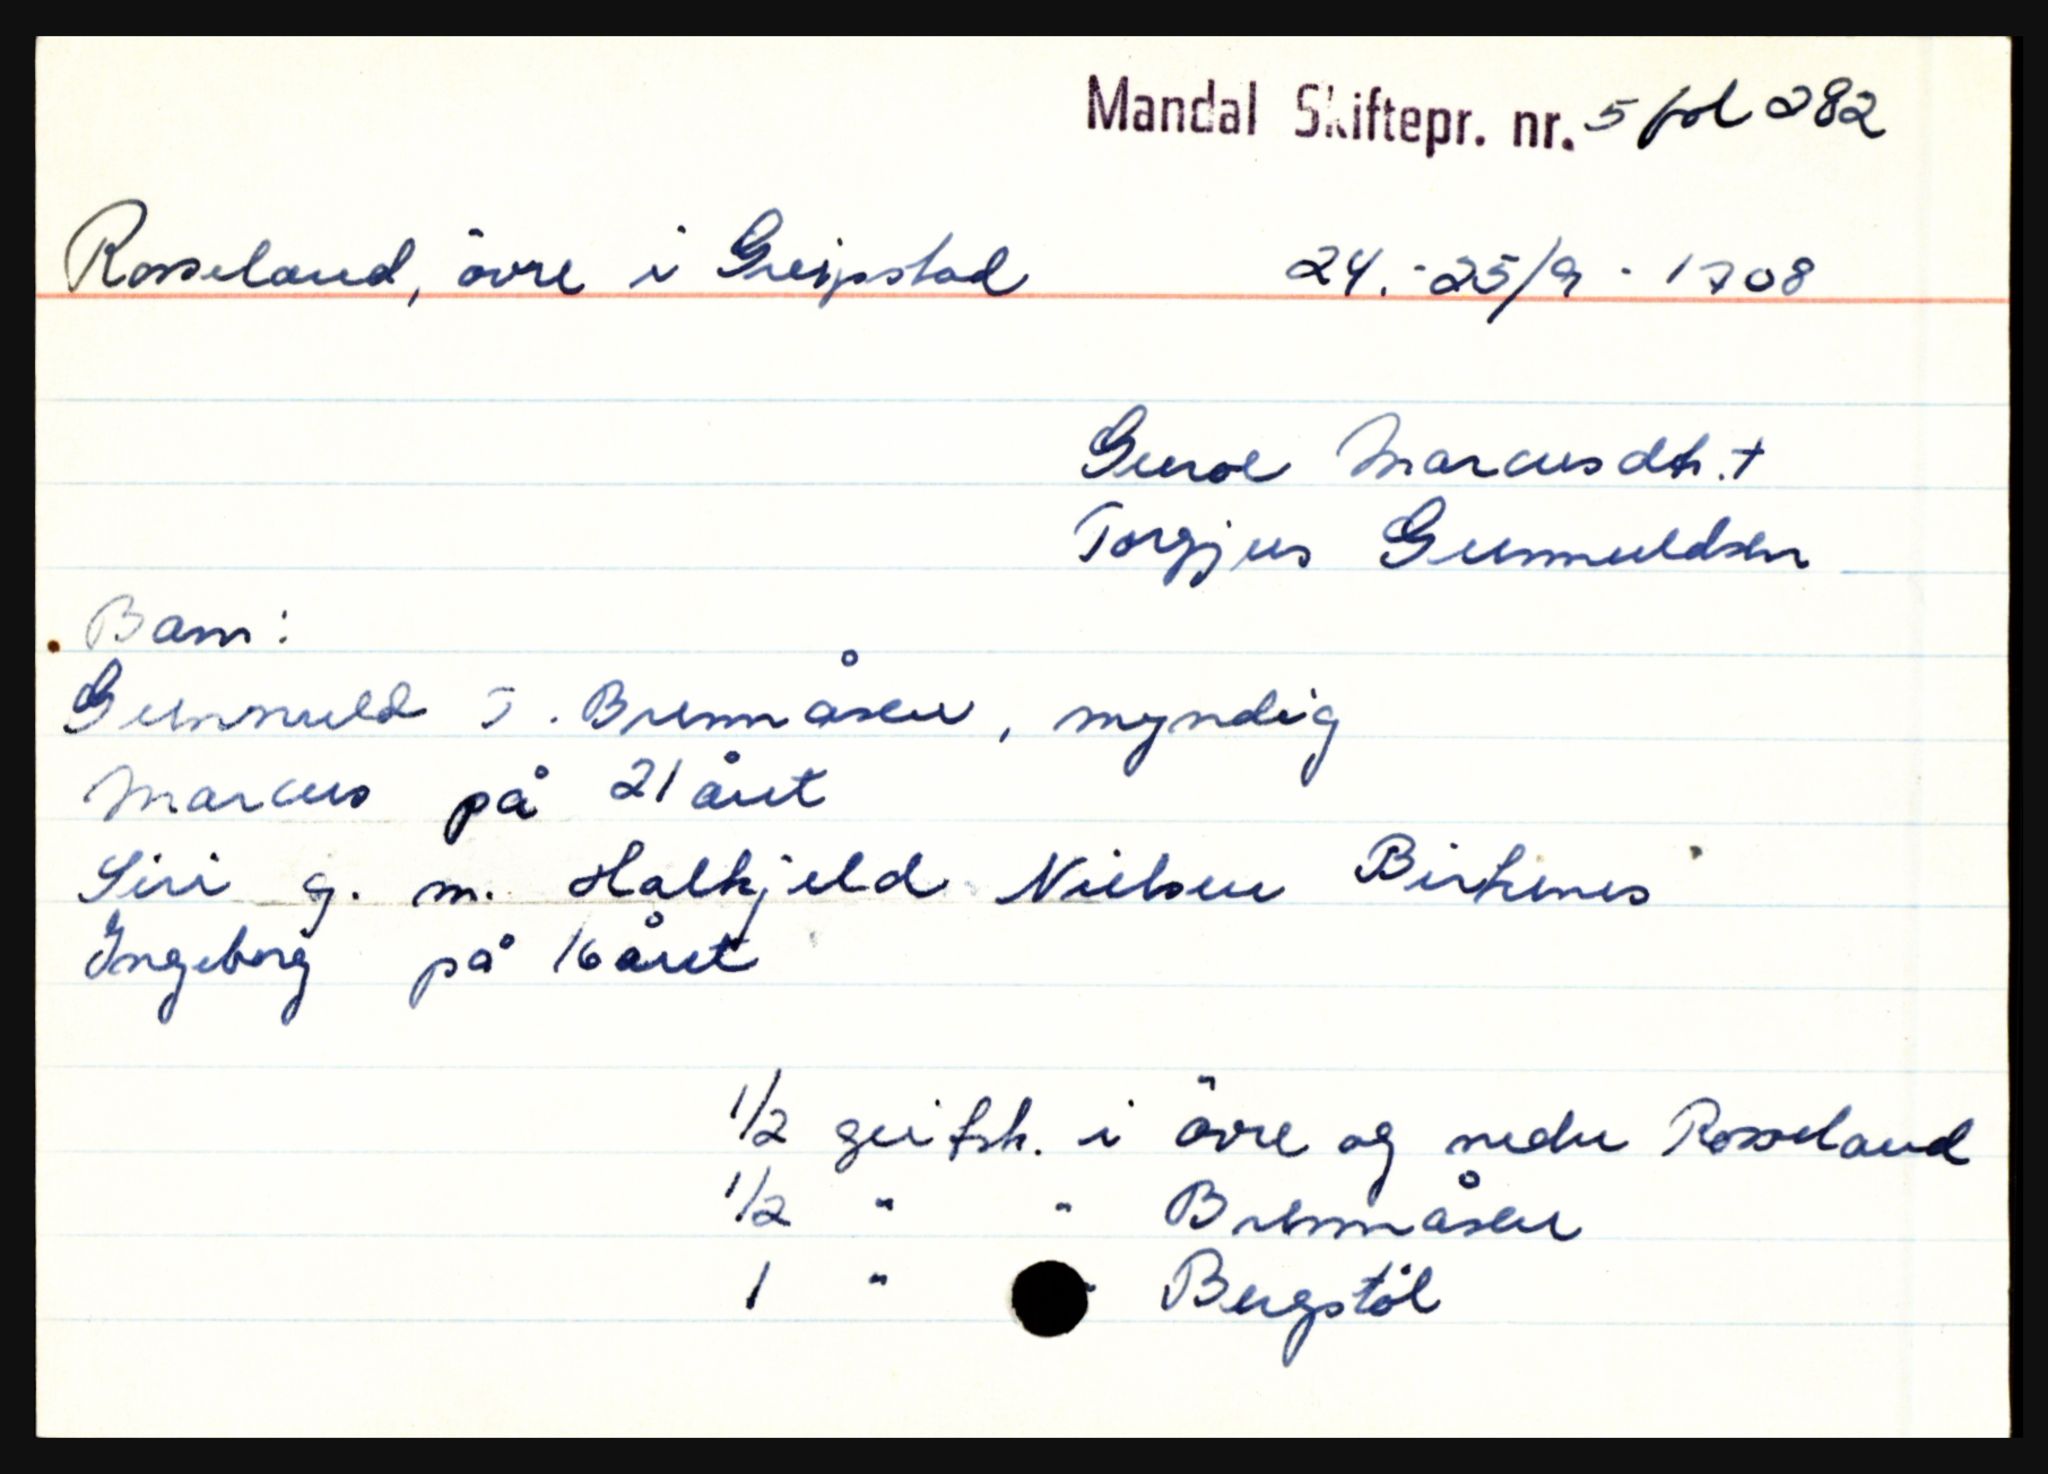 Mandal Skiftepr. nr. 5 fol 282
Rosseland, övre i Greipstad 24. - 25/9 - 1708
Guroe Marcusdtr. +
Torgjus Gunnuldsen
Barn:
Gunnuld T. Brennåsen, myndig
Marcus på 21 året
Siri g. m. Halkjeld Nielsen Birkenes
Ingeborg på 16 året
1/2 geitsk. i övre og nedre Rosseland
1/2 " " Brennåsen
1 " " Bergstöl